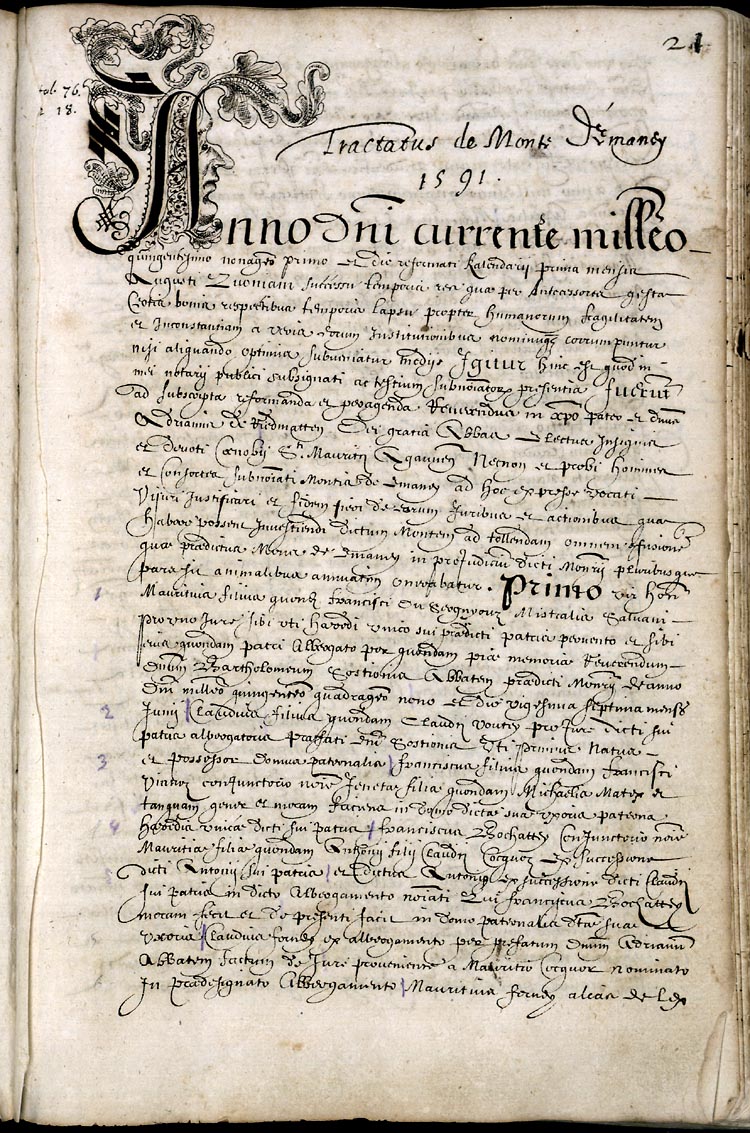 21
tol. 76.
18.
Tractatus de Monte Dēmaney
1591.
Anno Dn̄i currente milleo
quingentesimo nonageo primo et die reformati Kalendarii prima mensis
Augusti Quoniam successu temporis res quæ per Antecessores gesta
bonis respectibus temporis lapsu propter humanorum fragilitatem
et Inconstantiam a veris eorum Institutionibus corrumpuntur
nisi aliquando optimis subveniatur medijs Igitur hinc est quod in
mei notarij publici subsignati ac testium subnoīator presentia fuerūt
ad subscripta reformanda et peragenda Reverendus in xp̄o pater et
Adrianus de Riedmatten Dei gratia Abbas Electus Insignis
et devoti Cœnobij Sti Mauritij Agaunen Necnon et probi homines
et Consortes subnoīati Montis de Emaney ad hoc expresse vocati
Visuri Justificari et fidem fieri de eorum Juribus et actionibus quæ
habere possent Investiendi dictum Montem ad tollendam omnem
quia prædictus Mons de Emaney in preIudicium dicti Monrij pluribusque
animalibus annuatim onerabatur. Primo
1 Mauritius filius quond Francisci Du Mistralis Salvani
pro uno Jure sibi uti hæredi unico sui prædicti patris pervento et sibi
quondam patri Albergato per quondam piæ memoriæ Reverendum
Dnūm Bartholomeum Sostionis Abbatem prædicti Monrij de anno
Dnī milleo quingenteo quadrageo nono et die vigesima septima mensis
2 Junij Claudius filius quondam Claudij Voutey pro Jure dicti sui
patris albergatoris præfati Dnī Sostionis
3 et possessor domus paternalis Franciscus filius quondam Francisci
conjunctorio noīe Jenetæ filiæ quondam Michaelis Matex et
tanquam gener et moram faciens in domo dictæ suæ uxoris paterna
4 hæredis unicæ dicti sui patris Franciscus Bochattey Conjunctorio noīe
Mauritiæ filiæ quondam Anthonij filij Claudij Cocquoz ex successione
5 dicti Antonij sui patris et dictus Antonius ex successione dicti Claudij
sui patris in dicto Albergamento noīati Qui Franciscus Bochattey
moram fecit et de presenti facit in domo paternalis dictæ suæ
uxoris Claudius Forney ex albergamento per prefatum Dnūm Adrianū
Abbatem factum de Jure proveniente a Mauritio Cocquoz nominato
In prædesignato Albergamento Mauritius Forney alias de